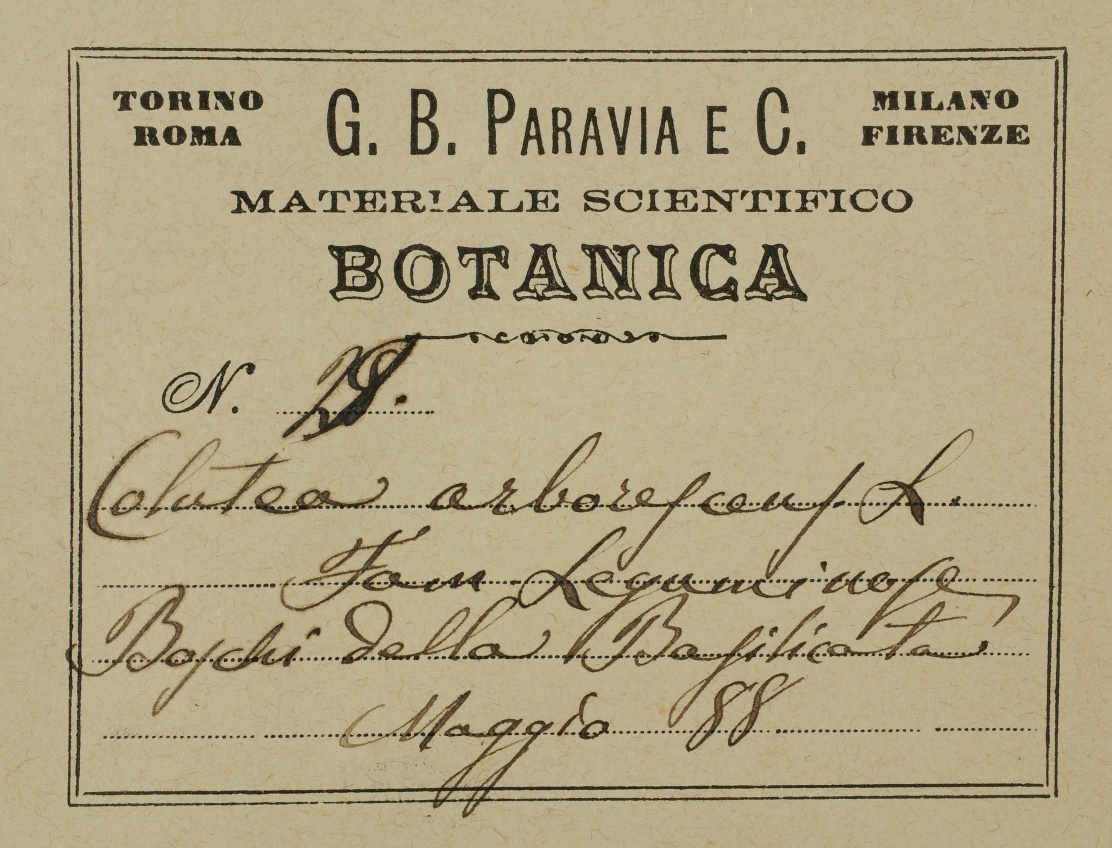 TORINO G. B. PARAVIA E C. MILANO
ROMA FIRENZE
MATERIALE SCIENTIFICO
BOTANICA
N. 28.
Colutea arborescens L.
Fam Leguminose
Boschi della Basilicata
Maggio 88